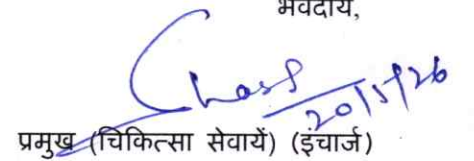 भवदीय,
20/5/26
प्रमुख (चिकित्सा सेवायें) (इंचार्ज)